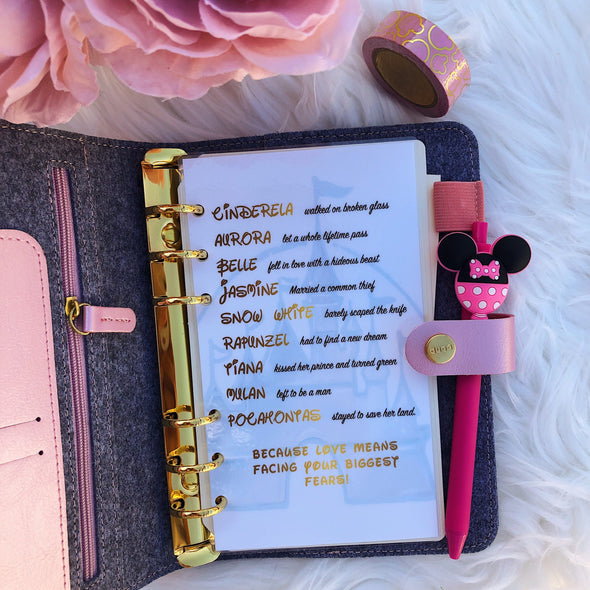 CINDERELA walked on broken glass
AURORA let a whole lifetime pass
BELLE fell in love with a hideous beast
JASMINE Married a common thief
SNOW WHITE barely scaped the knife
RAPUNZEL had to find a new dream
TIANA kissed her prince and turned green
MULAN left to be a man
POCAHONTAS stayed to save her land.
BECAUSE LOVE MEANS
FACING YOUR BIGGEST
FEARS!